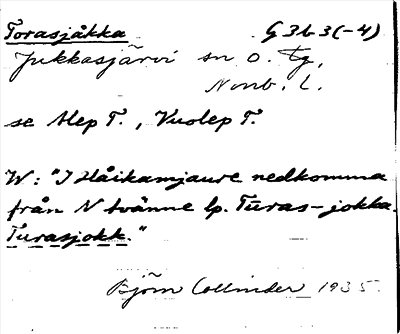 Torasjåkka G 3b3(-4)
Jukkasjärvi sn o. tg,
Norrb. l.
se Alep T., Vuolep T.
W: "I Håikamjaure nedkomma
från N tvänne lp. Tūras-jokka.
Turasjokk."
Björn Collinder 1935